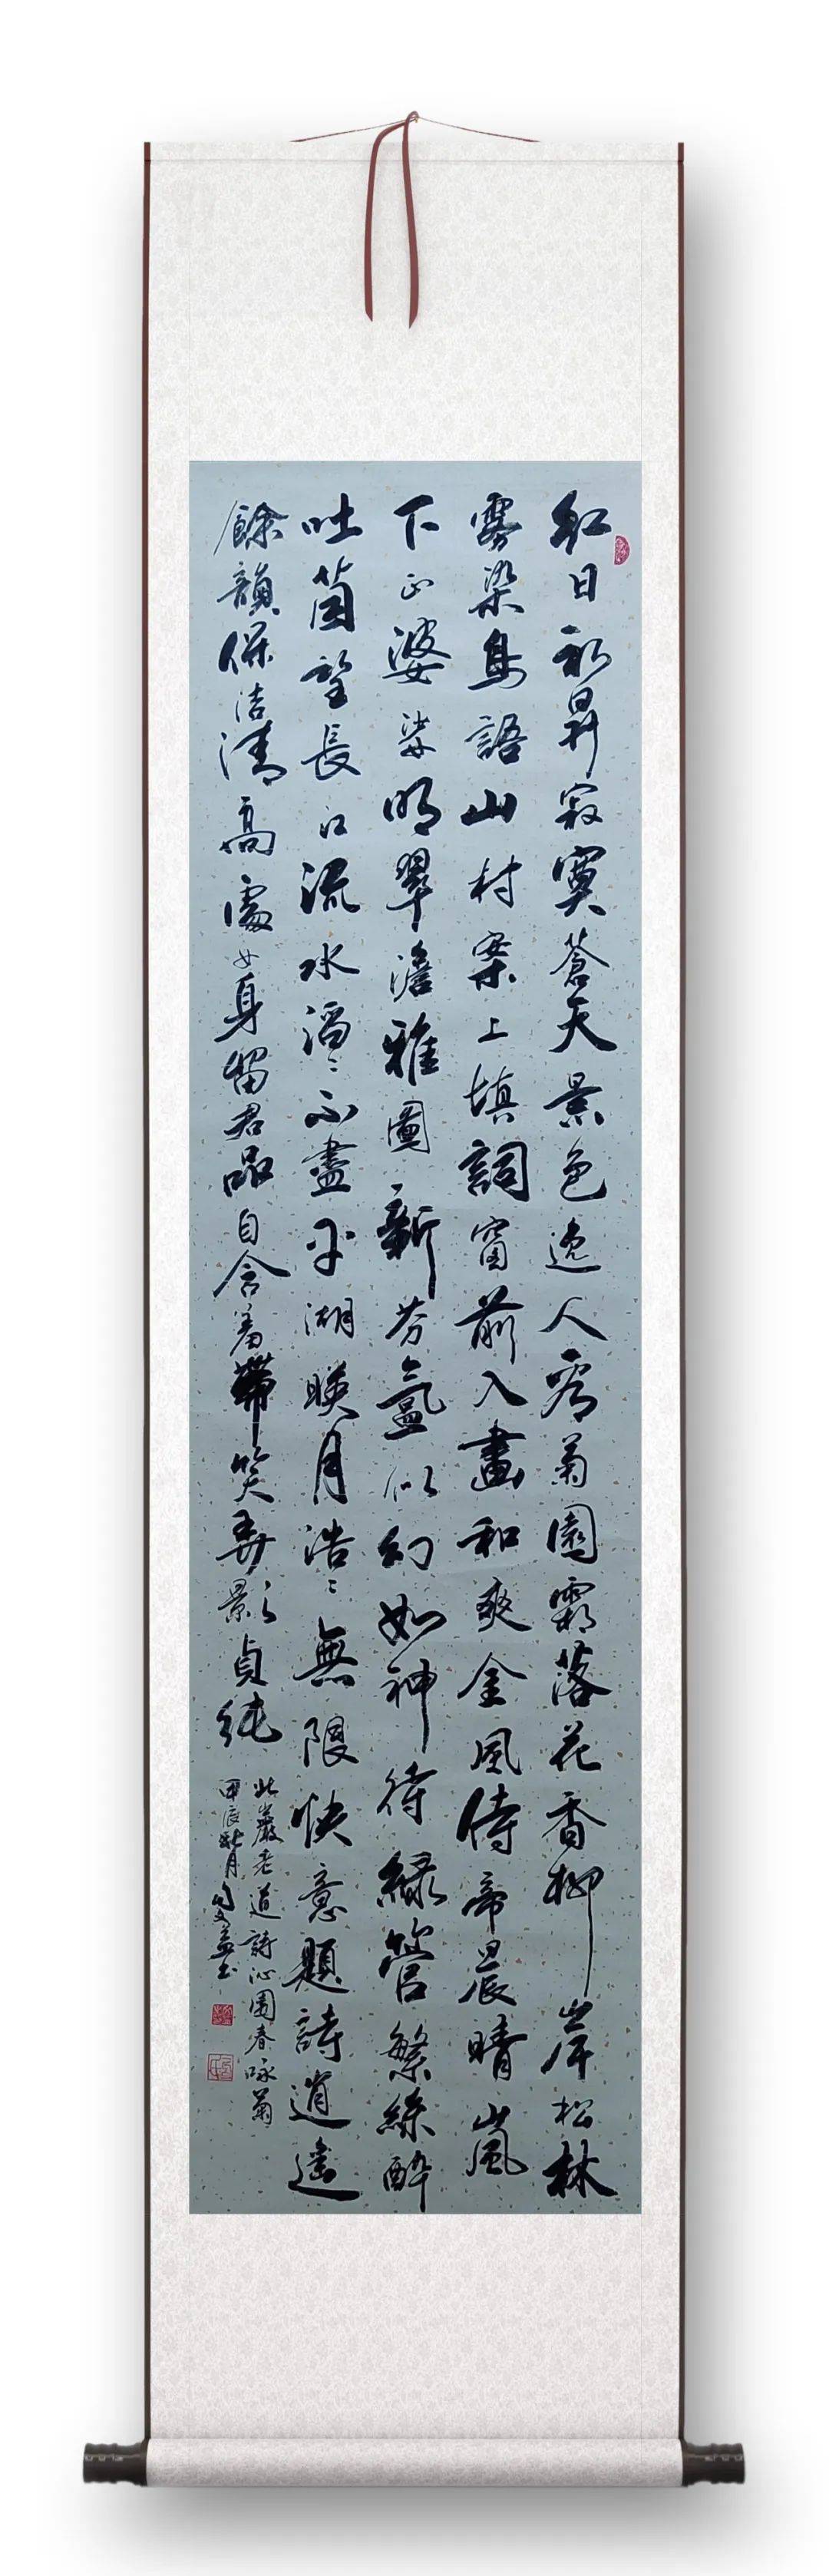 紅日初昇寂寞蒼天景色逸人看菊園霜落花香柳岸松林
霧染鳥語山村案上填詞窗前入畫和爽金風侍帝晨晴嵐
下正婆娑明翠澹雅圖新芬氳似幻如神待綠管繁絲醉
吐茵望長江流水滔〻不盡平湖映月浩〻無限快意題詩逍遙
餘韻保洁清高處女身留君品自含羞帶笑弄影貞純
北巖老道詩沁園春咏菊
甲辰秋月